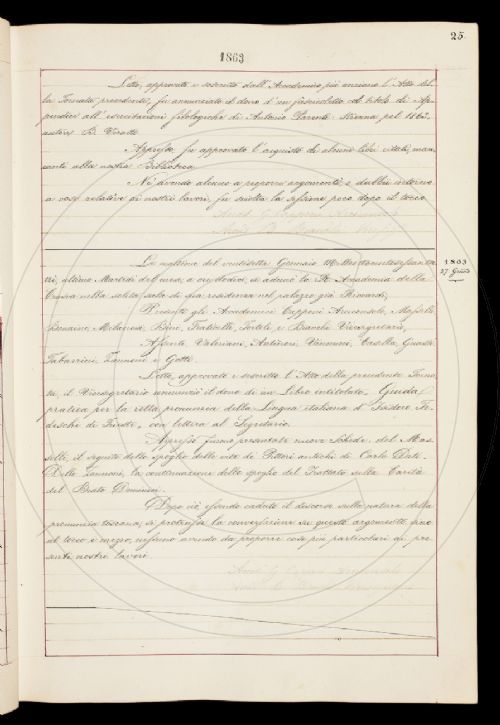 25.
1863
Letto, approvato e soscritto dall'Accademico più anziano l'Atto del-
la Tornata precedente, fu annunziato il dono d'un fascicoletto col titolo di Ap-
pendice all'esercitazioni filologiche di Antonio Parenti Strenna pel 1863.
autore B. Veratti
Appresso fu approvato l'acquisto di alcuni libri citati, man-
canti alla nostra Biblioteca
Nè avendo alcuno a proporre argomenti e dubbii intorno
a cose relative ai nostri lavori, fu sciolta la sessione poco dopo il tocco
La mattina del ventisette Gennaio Milleottocentosessanta
tre, ultimo Martedì del mese, a ore dodici, si adunò la R. Accademia della
Crusca nella solita sala di sua residenza nel palazzo già Riccardi,
Presenti gli Accademici Capponi Arciconsolo, Masselli
Bonaini, Milanesi, Bini, Fraticelli, Tortoli e Bianchi Vicesegretario,
Assenti Valeriani, Antinori, Vannucci, Casella, Guasti
Tabarrini, Zannoni e Gotti.
1863
27 Genn.
Letto, approvato e soscritto l'Atto della precedente Torna-
ta, il Vicesegretario annunziò il dono di un Libro intitolato, Guida
pratica per la retta pronunzia della Lingua italiana d'Isidoro Te-
deschi di Trieste, con lettera al Segretario.
Appresso furono presentate nuove schede del Mas-
selli, il seguito dello spoglio delle vite de Pittori antichi di Carlo Dati.
Dello Zannoni, la continuazione dello spoglio del Trattato sulla Carità
del Beato Dominici.
Dopo ciò, essendo caduto il discorso sulla natura della
pronunzia toscana, si protrasse la conversazione su questo argomento fino
al tocco e mezzo, nessuno avendo da proporre cose più particolari ai pre-
senti nostri lavori